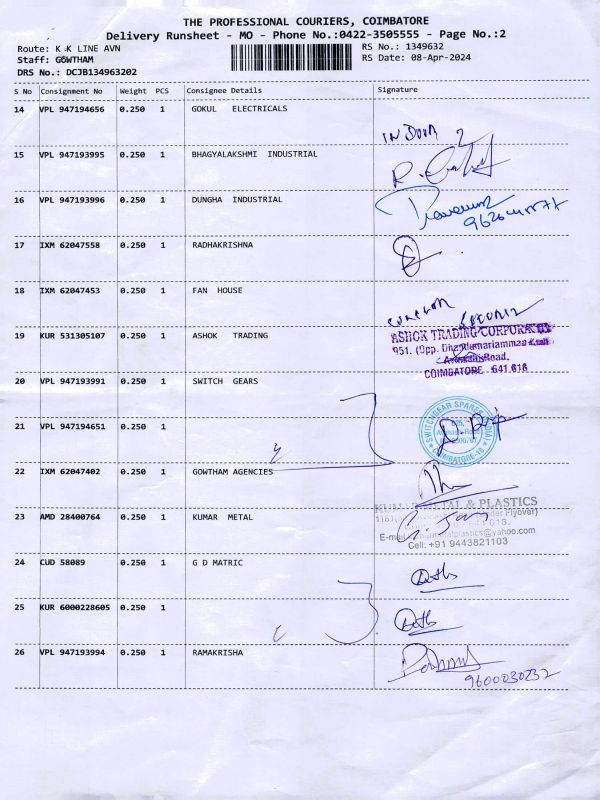 THE PROFESSIONAL COURIERS, COIMBATORE
Delivery Runsheet - MO - Phone No.:0422-3505555 - Page No.:2
Route: K K LINE AVN
RS No.: 1349632
Staff: GOWTHAM
RS Date: 08-Apr-2024
DRS No.: DCJB134963202
S No Consignment No Weight PCS Consignee Details Signature
14 VPL 947194656 0.250 1 GOKUL ELECTRICALS
15 VPL 947193995 0.250 1 BHAGYALAKSHMI INDUSTRIAL
16 VPL 947193996 0.250 1 DUNGHA INDUSTRIAL
17 IXM 62047558 0.250 1 RADHAKRISHNA
18 IXM 62047453 0.250 1 FAN HOUSE
19 KUR 531305107 0.250 1 ASHOK TRADING
ASHOK TRADING CORPORATION
951. (Opp. Dhandumariamman
Road,
COIMBATORE 641 018
20 VPL 947193991 0.250 1 SWITCH GEARS
SWITCHGEAR SPARES
COIMBATORE-18
21 VPL 947194651 0.250 1
22 IXM 62047402 0.250 1 GOWTHAM AGENCIES
23 AMD 28400764 0.250 1 KUMAR METAL
METAL & PLASTICS
Flyover)
plastics@yahoo.com
Cell: +91 9443821103
24 CUD 58089 0.250 1 G D MATRIC
25 KUR 6000228605 0.250 1
26 VPL 947193994 0.250 1 RAMAKRISHA
9600030232